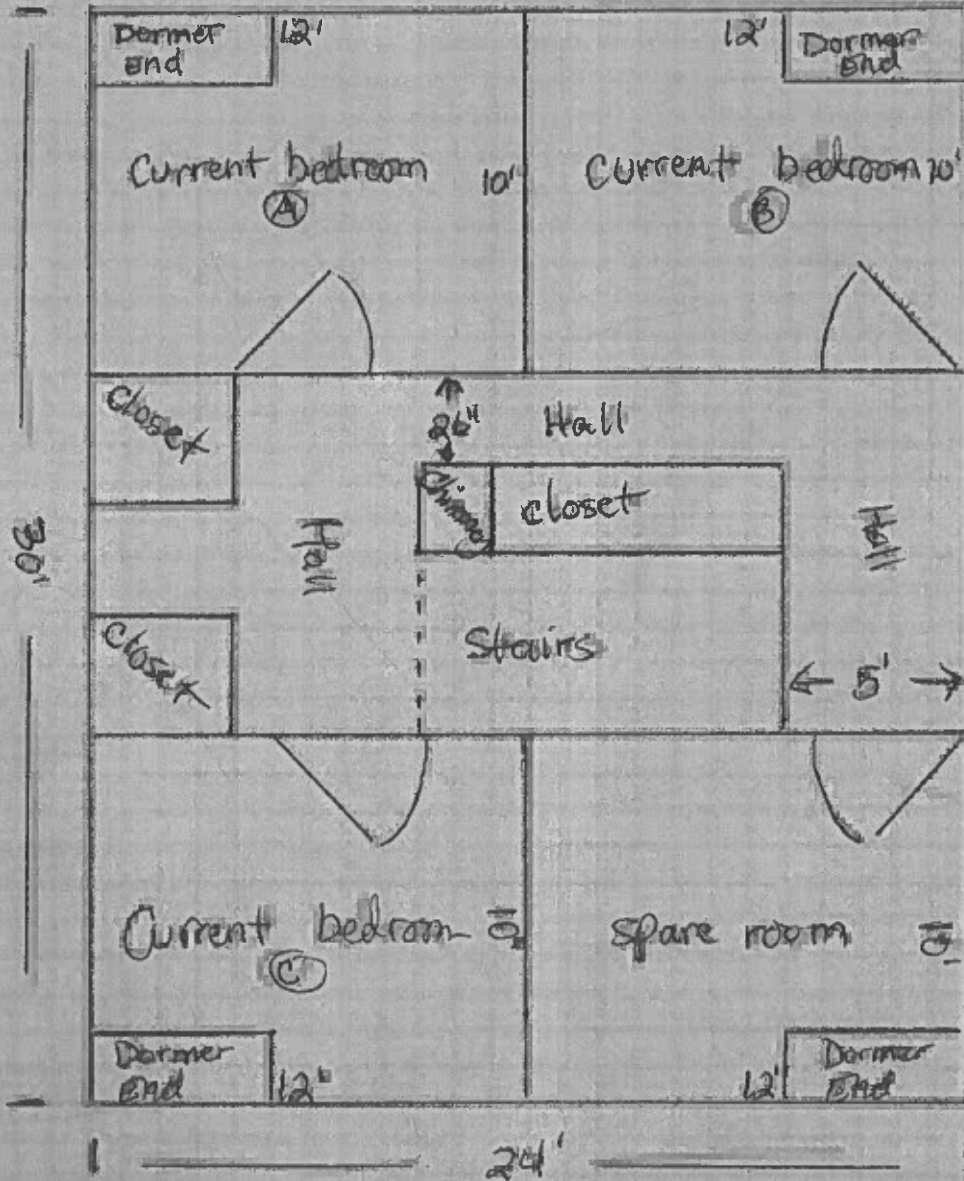 Dormer
End
12'
12'
Dormer
End
Current bedroom
10'
A
Current bedroom 10'
B
Closet
26"
Hall
Chimney
closet
Hall
Hall
30'
Closet
Stairs
← 5' →
Current bedrom
10'
C
spare room
10'
Dormer
End
12'
12'
Dormer
End
24'